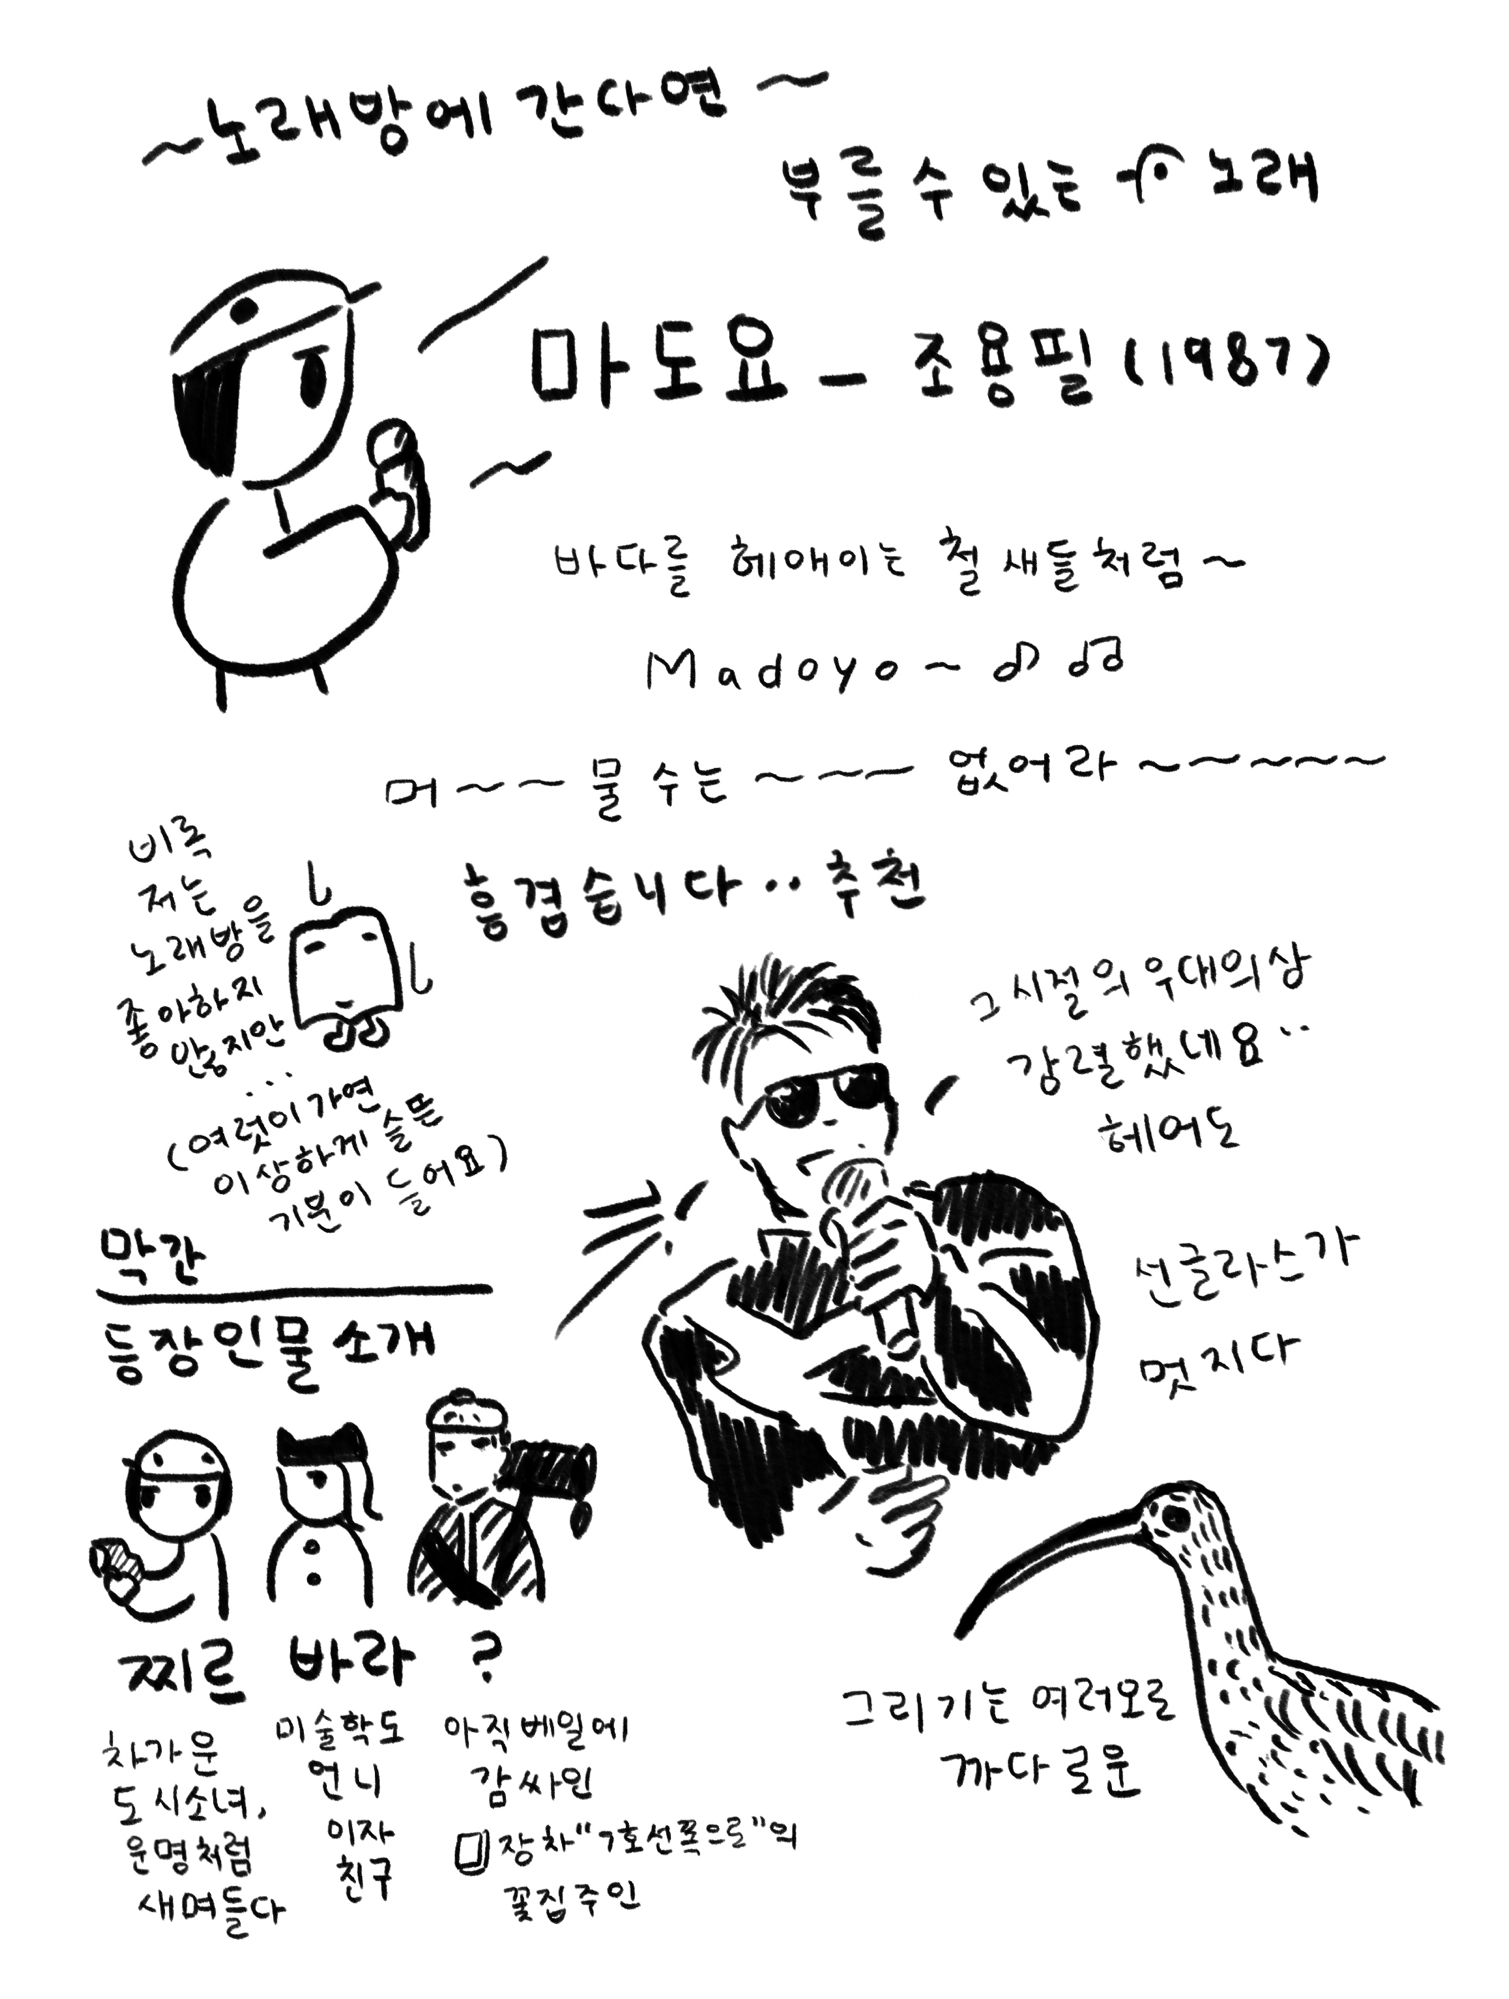 ~노래방에 간다면~
부를 수 있는 노래
마도요 - 조용필 (1987)
바다를 헤애이는 철새들처럼~
Madoyo~
머~~물 수는~~~ 없어라~~~~~
흥겹습니다.. 추천
비록
저는
노래방을
좋아하지
않지만
...
(여럿이 가면
이상하게 슬픈
기분이 들어요)
그 시절의 무대의상
강렬했네요..
헤어도
선글라스가
멋지다
막간
등장인물 소개
찌르
차가운
도시소녀,
운명처럼
새며들다
바라
미술학도
언니
이자
친구
?
아직 베일에
감싸인
장차 "7호선쪽으로"의
꽃집주인
그리기는 여러모로
까다로운